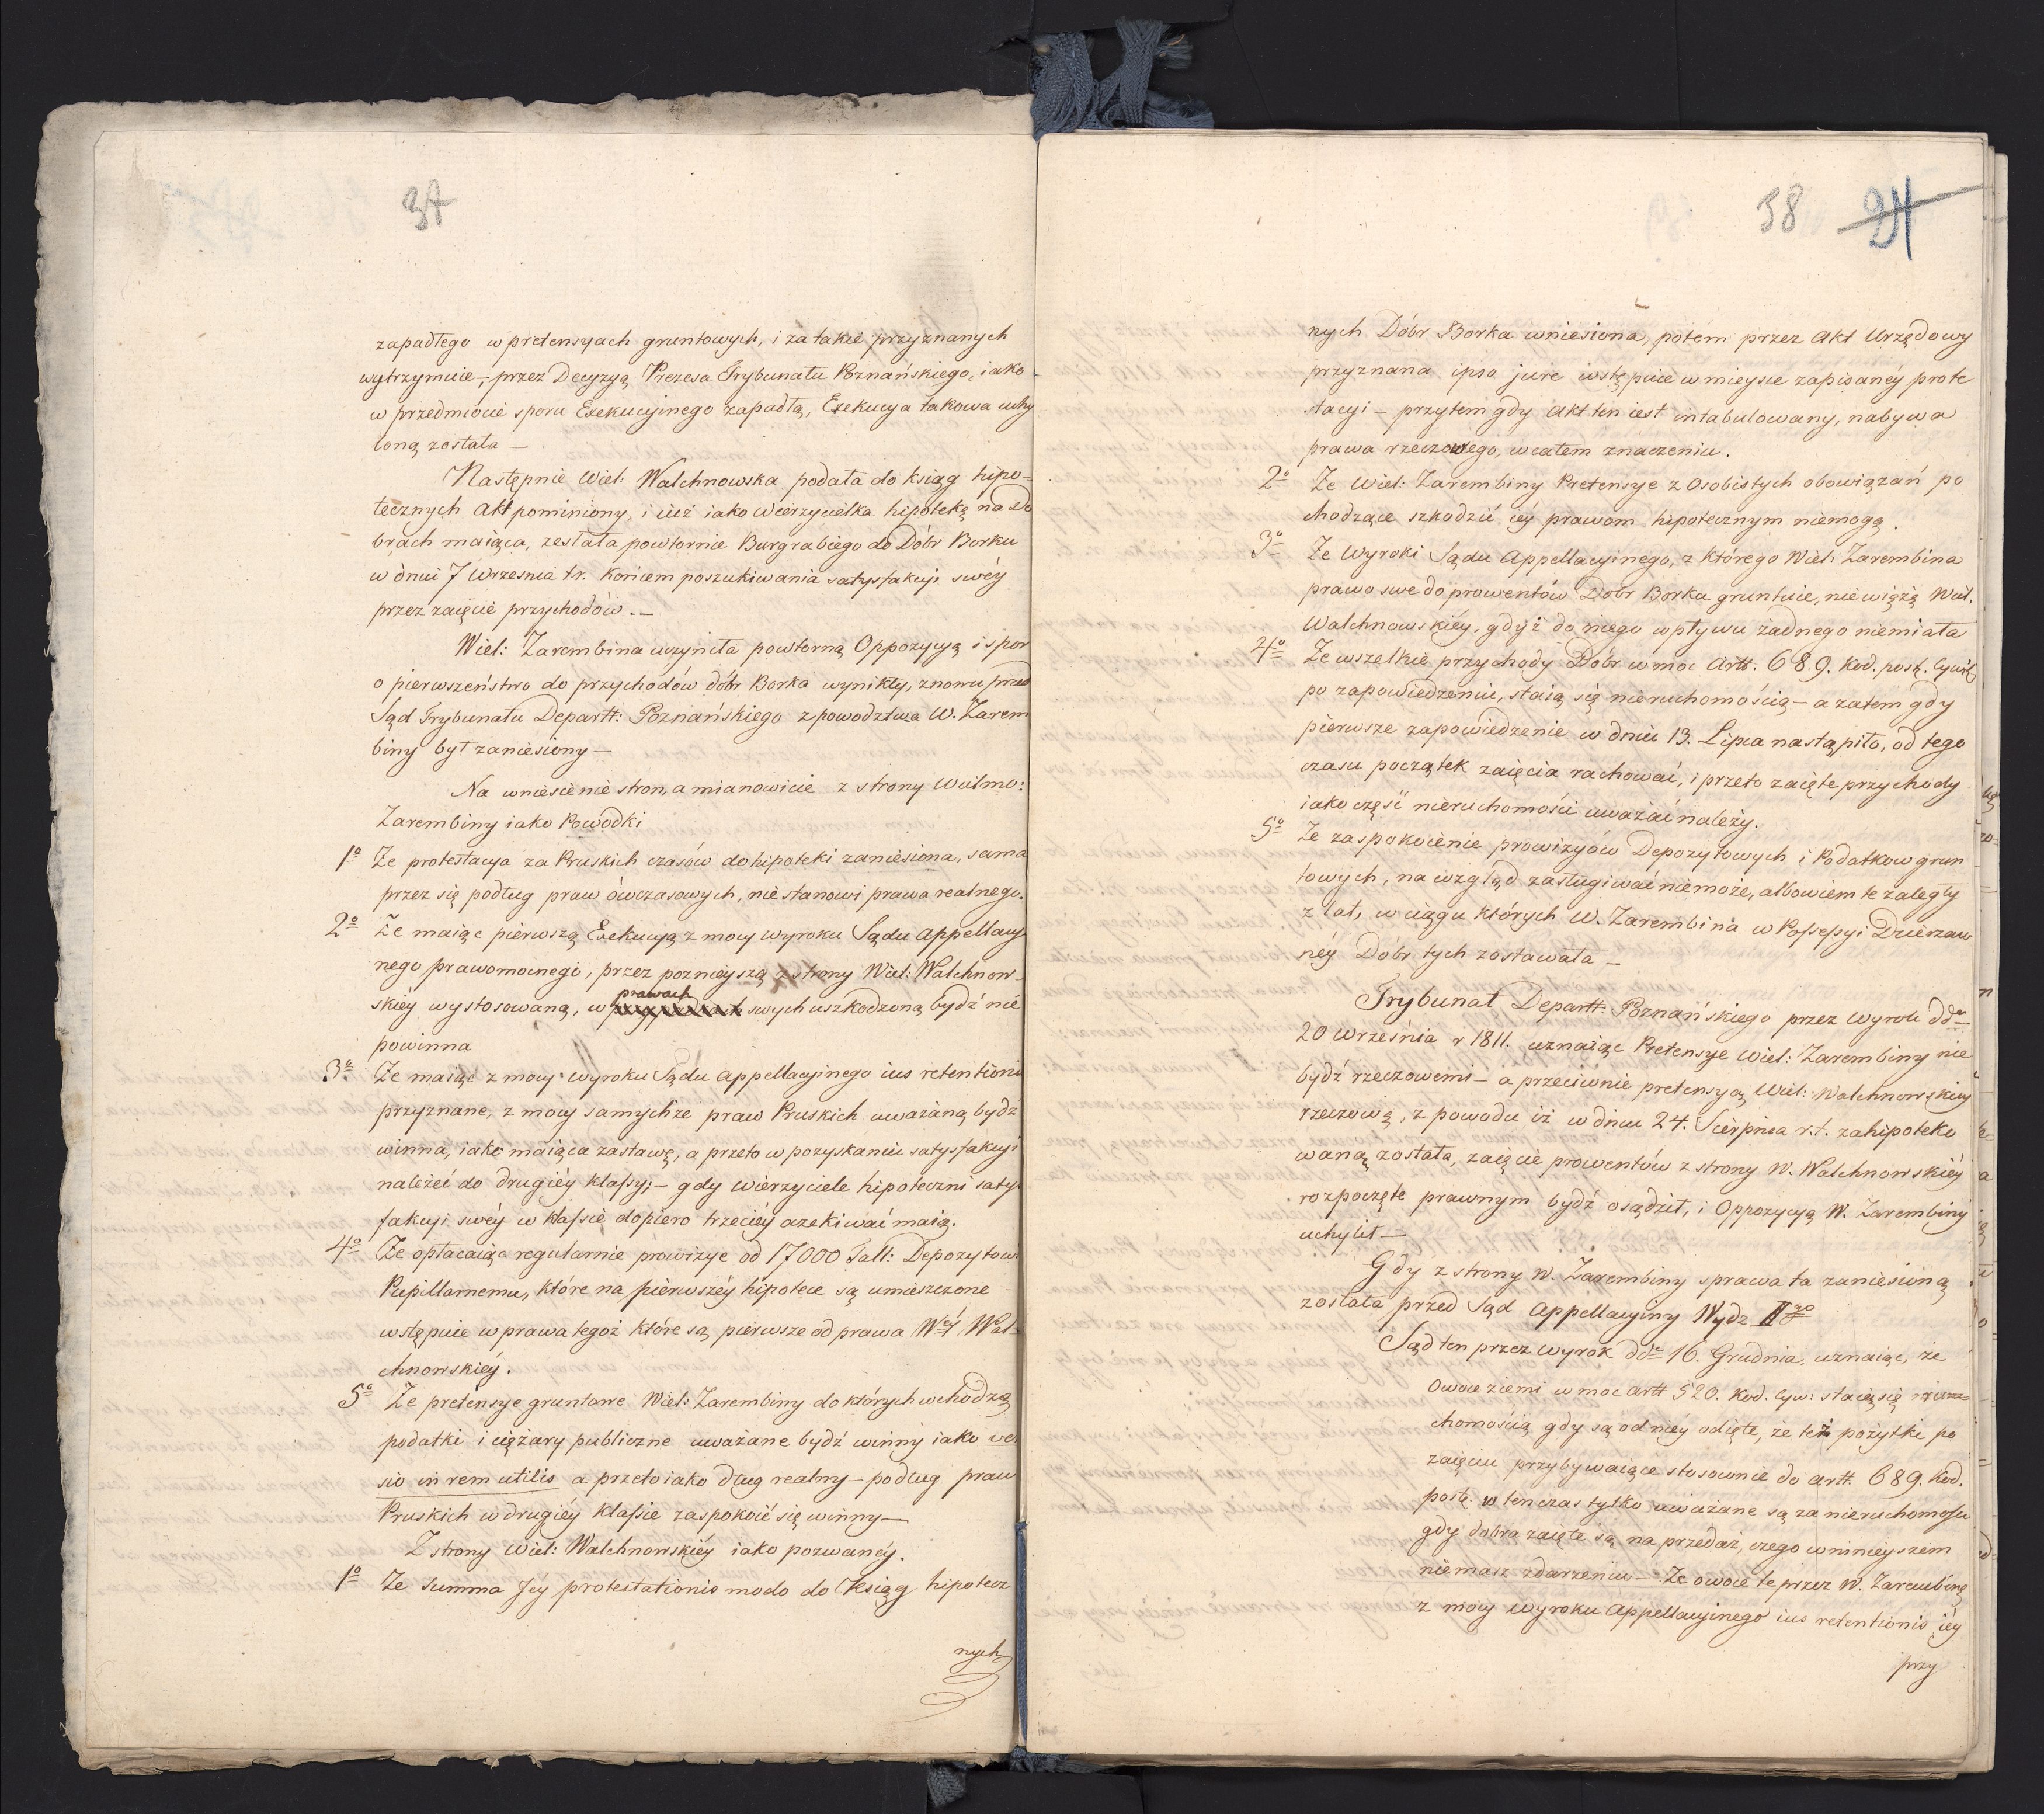 37
zapadłego w pretensyach gruntowych, i za takie przyznanych
wytrzymuie, przez Decyzyą Prezesa Trybunału Poznańskiego, iako
w przedmiocie sporu Exekucyinego zapadłą, Exekucya takowa uchy
loną została —
Następnie Wiel: Walchnowska podała do ksiąg hipo-
tecznych Akt pominiony, i iuż iako Wierzycielka hipotekę na Do
brach maiąca, zesłała powtornie Burgrabiego do Dóbr Borku
w dniu 7 Wrzesnia tr. końcem poszukiwania satysfakcyi swéy
przez zaięcie przychodów. —
Wiel: Zarembina uczyniła powtorną Oppozycyą i spor
o pierwszeństwo do przychodów dóbr Borka wynikły, znowu przed
Sąd Trybunału Departt: Poznańskiego z powodztwa W. Zarem
biny był zaniesiony —
Na wniesienie stron, a mianowicie z strony Wielmo:
Zarembiny iako Powodki
1º Ze protestacya za Pruskich czasów do hipoteki zaniesiona, sama
przez się podług praw ówczasowych, nie stanowi prawa realnego.
2º Ze maiąc pierwszą Exekucyą z mocy wyroku Sądu Appellacy
nego prawomocnego, przez poznieyszą z strony Wiel: Walchnow-
skiéy wystosowaną, w prawach swych uszkodzoną bydź nie
powinna
3º Ze maiąc z mocy wyroku Sądu Appellacyinego ius retentionis
przyznane, z mocy samychże praw Pruskich uważaną bydź
winna, iako maiąca zastawę, a przeto w pozyskaniu satysfakcyi
należeć do drugiéy klassy; — gdy wierzyciele hipoteczni satys
fakcyi swéy w klassie dopiero trzeciéy oczekiwać maią.
4º Ze opłacaiąc regularnie prowizye od 17000 Tall: Depozytowi
Pupillarnemu, które na pierwszéy hipotece są umieszczone
wstępuie w prawa tegoż które są pierwsze od prawa Wéy Wal-
chnowskiéy.
5º Ze pretensye gruntowe Wiel: Zarembiny do których wchodzą
podatki i ciężary publiczne uważane bydź winny iako ver
sio in rem utilis a przeto iako dług realny — podług praw
Pruskich w drugiéy klassie zaspokoić się winny —
Z strony Wiel: Walchnowskiéy iako pozwanéy.
1º Ze Summa Jéy protestationis modo do Ksiąg hipotecz
nych
38 24
nych Dóbr Borka wniesiona, potem przez Akt Urzędowy
przyznana ipso jure wstępuie w mieysce zapisanéy prote
stacyi — przytem gdy Akt ten iest intabulowany, nabywa
prawa rzeczowego, w całem znaczeniu.
2º Ze Wiel: Zarembiny Pretensye z Osobistych obowiązań po
chodzące szkodzić iéy prawom hipotecznym niemogą.
3º Ze Wyroki Sądu Appellacyinego, z którego Wiel: Zarembina
prawo swe do prowentów Dóbr Borku gruntuie, nie wiążą Wiel.
Walchnowskiéy, gdyż do niego wpływu żadnego niemiała
4º Ze wszelkie przychody Dóbr w moc Artt. 689. Kod. post. Cywil
po zapowiedzeniu, staią się nieruchomością — a zatem gdy
pierwsze zapowiedzenie w dniu 13. Lipca nastąpiło, od tego
czasu początek zaięcia rachować, i przeto zaięte przychody
iako część nieruchomości uważać należy.
5º Ze zaspokoienie prowizyów Depozytowych i Podatkow grun
towych, na wzgląd zasługiwać niemoże, albowiem te zaległy
z lat, w ciągu których W. Zarembina w Possessyi Dzierzaw
néy Dóbr tych zostawała —
Trybunał Departt: Poznańskiego przez Wyrok dd
20 Września r 1811. uznaiąc Pretensye Wiel: Zarembiny nie
bydź rzeczowemi — a przeciwnie pretensyą Wiel: Walchnowskiey
rzeczową, z powodu iż w dniu 24. Sierpnia r.t. zahipoteko
waną została, zaięcie prowentów z strony W. Walchnowskiéy
rozpoczęte prawnym bydź osądził, i Oppozycyą W. Zarembiny
uchylił —
Gdy z strony W. Zarembiny sprawa ta zaniesioną
została przed Sąd Appellacyiny Wydz. II go
Sąd ten przez wyrok dd 16. Grudnia uznaiąc, że
Owoce ziemi w moc artt 520. Kod. Cyw: staią się
chomością gdy są od niey odięte, że też pożytki po
zaięciu przybywaiące stosownie do artt. 689. Kod.
postę. w ten czas tylko uważane są za nieruchomość
gdy dobra zaięte są na przedaż, czego w ninieyszem
niemasz zdarzeniu — Ze owoce te przez W. Zarembinę
z mocy wyroku Appellacyinego ius retentionis iéy
przy